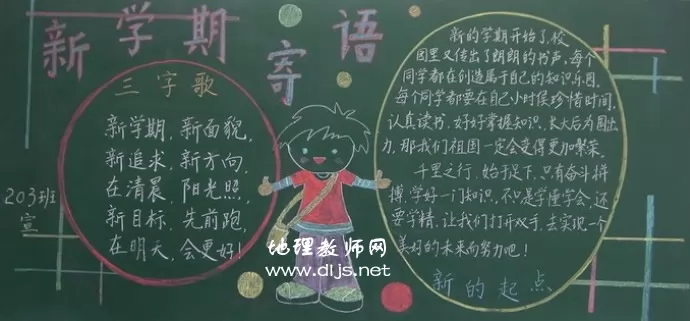 新学期寄语
三字歌
新学期，新面貌，
新追求，新方向，
在清晨，阳光照，
新目标，先前跑，
在明天，会更好！
203班
宣
新的学期开始了，校
园里又传出了朗朗的书声，每个
同学都在创造属于自己的知识乐园。
每个同学都要在自己小时候珍惜时间，
认真读书，好好掌握知识，长大后为国出
力，那我们祖国一定会变得更加繁荣。
千里之行，始于足下，只有奋斗拼
搏，学好一门知识，不只是学懂学会，还
要学精，让我们打开双手，去实现一个
美好的未来而努力吧！
新的起点
地理教师网
www.dljs.net